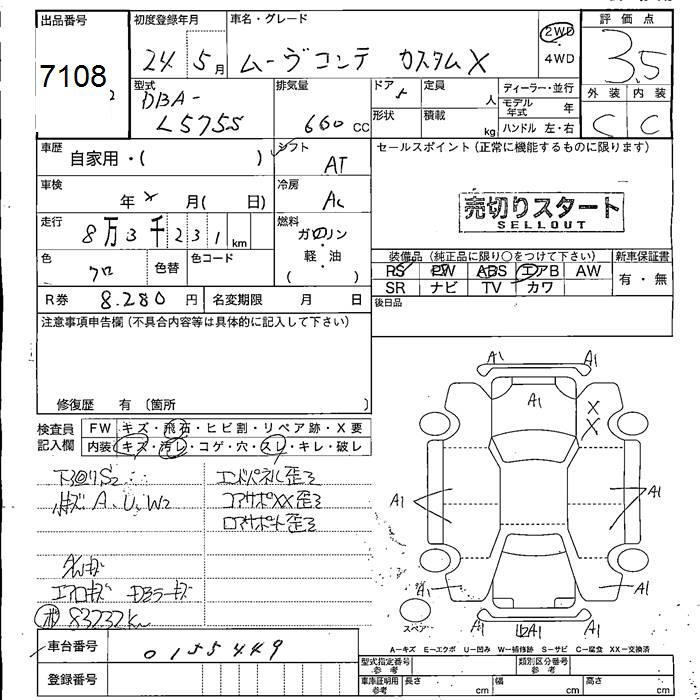 出品番号
7108
2
初度登録年月
24 5月
車名・グレード
ムーヴコンテ カスタムX
2WD
・
4WD
評価点
3.5
外装 内装
C C
型式
DBA-
L575S
排気量
660 cc
ドア
5
定員
人
形状
積載
kg
ディーラー・並行
モデル年式 年
ハンドル 左・右
車歴
自家用・( )
シフト
AT
セールスポイント(正常に機能するものに限ります)
売切りスタート
SELLOUT
車検
年 × 月( 日)
冷房
AC
走行
8万3千231km
燃料
ガソリン
・
軽・油
( )
色
クロ
色替
色コード
装備品(純正品に限り○をつけて下さい)
新車保証書
PS PW ABS エアB AW
SR ナビ TV カワ
有・無
R券 8.280 円
名変期限 月 日
後日品
注意事項申告欄(不具合内容等は具体的に記入して下さい)
修復歴 有 〔箇所 〕
検査員
記入欄
FW キズ・飛石・ヒビ割・リペア跡・X要
内装 キズ・汚レ・コゲ・穴・スレ・キレ・破レ
下回りS2
エンドパネル歪ミ
キズA、U、W2
コアサポXX歪ミ
ロアサポート歪ミ
エアロキズ
83232km
A1 A1
A1
X
X
A1 A1
A1 A1
A1 A1
スペア
A-キズ E-エクボ U-凹み W-補修跡 S-サビ C-腐食 XX-交換済
車台番号 0155449
登録番号
型式指定番号
参考
類別区分番号
参考
車庫証明用
参考
長さ cm
幅 cm
高さ cm